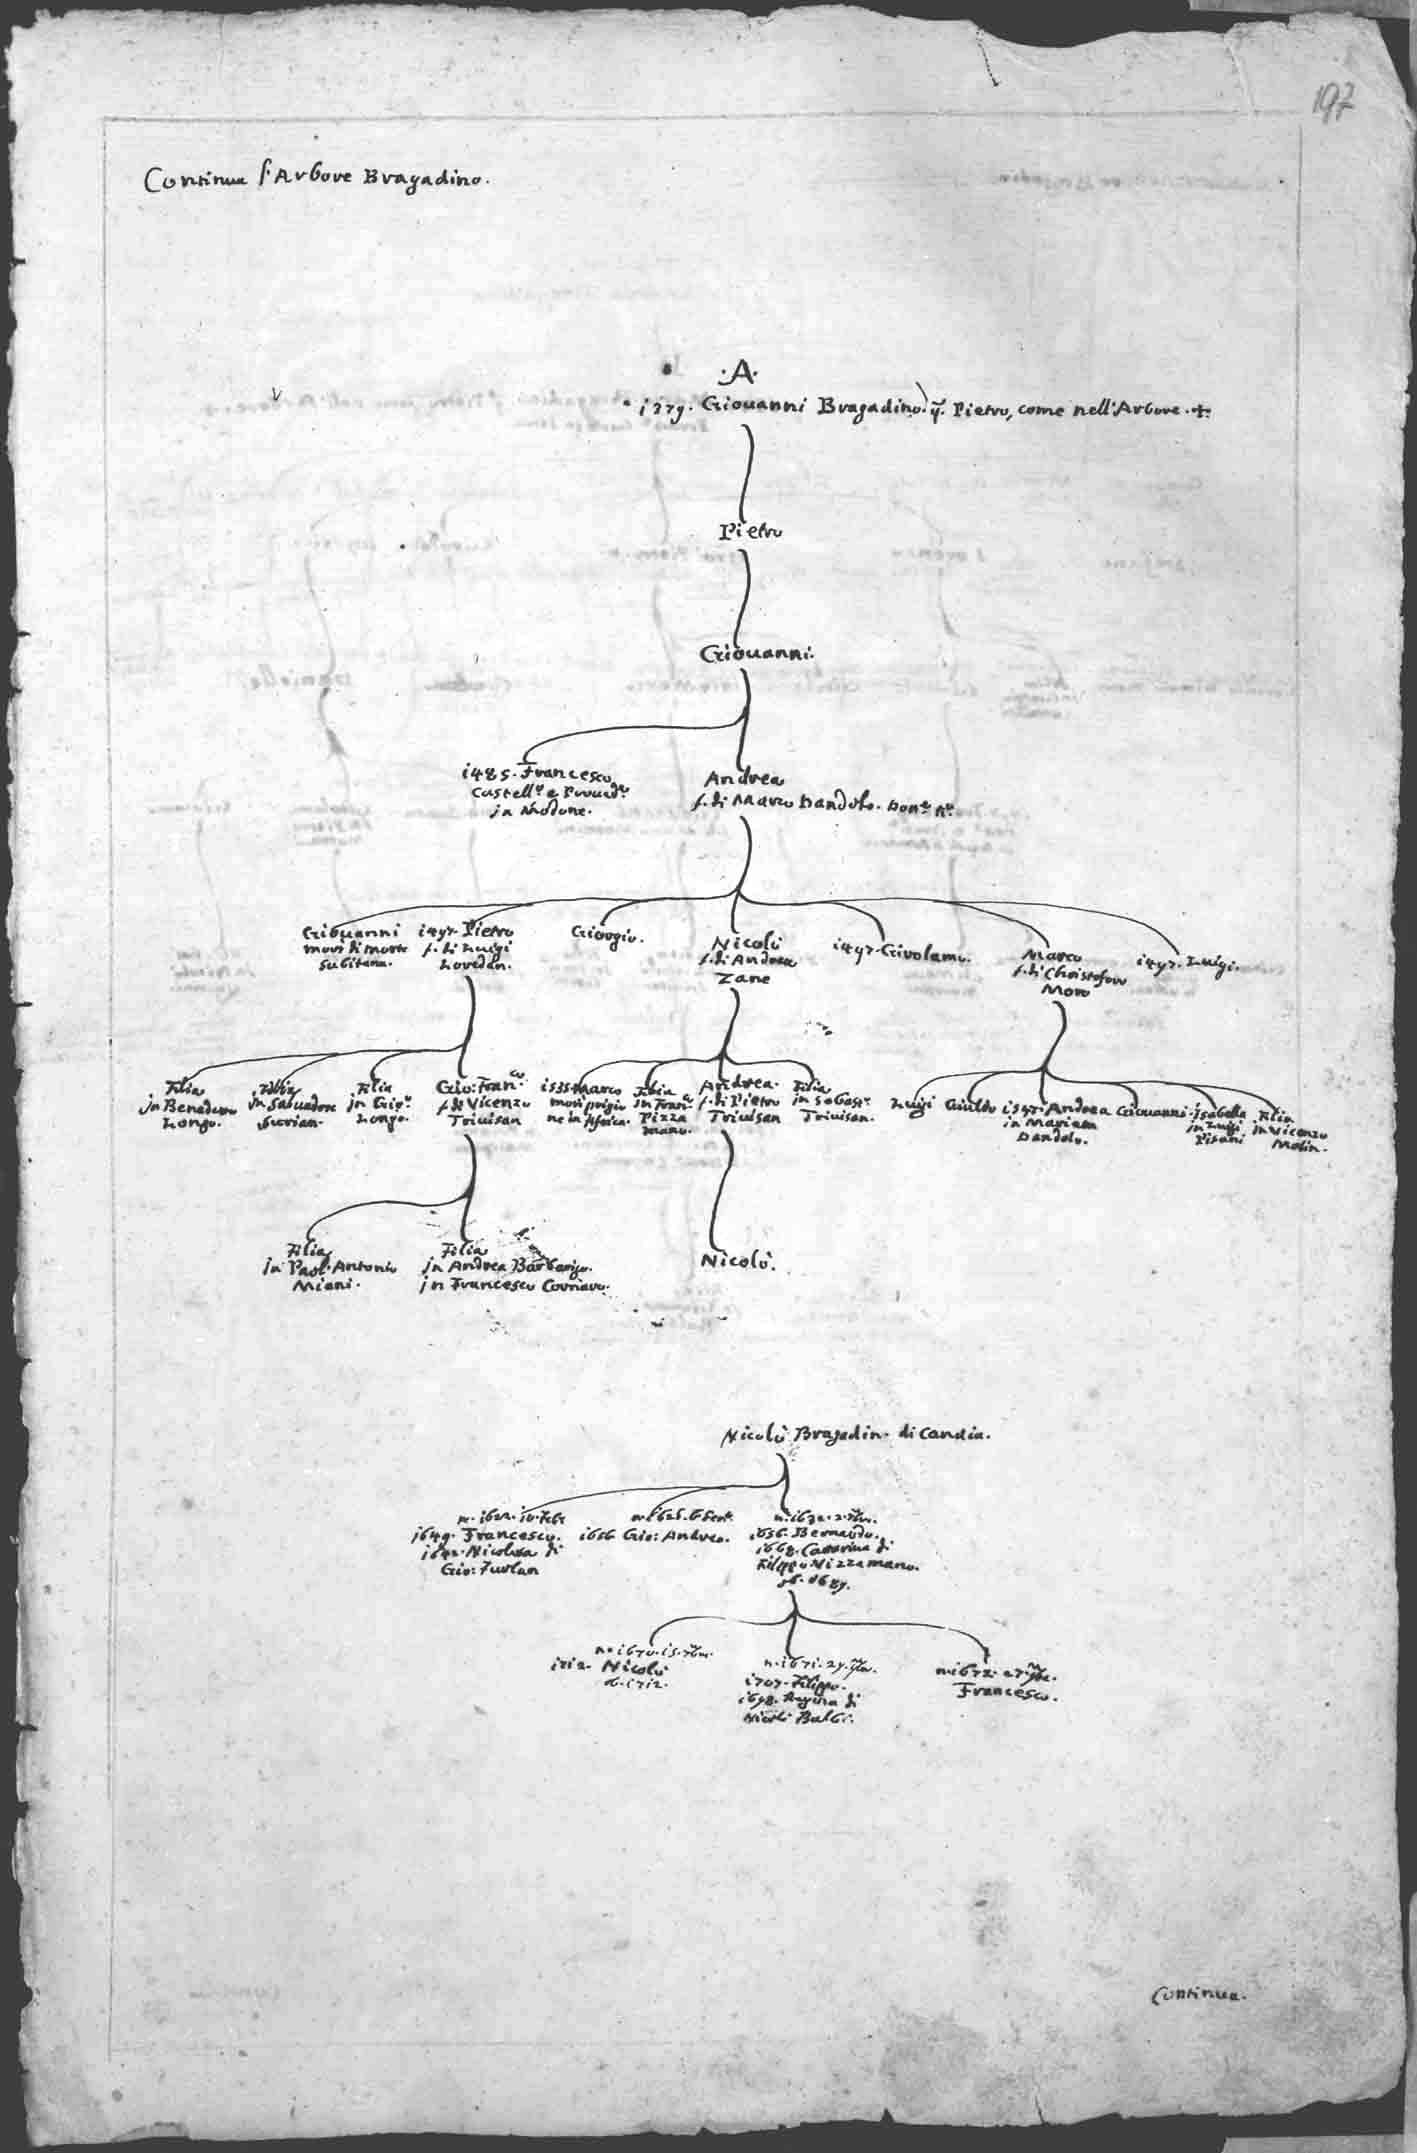 197
Continua l'Arbore Bragadino.
.A.
1379. Giouanni Bragadino q. Pietro, come nell'Arbore. +
Pietro
Giouanni.
1485. Francesco
Castell.º e Proued.r
in Modone.
Andrea
f. di Marco Dandolo.
Giouanni
morì di morte
subitana.
1497. Pietro
f. di Luigi
Loredan.
Giorgio.
Nicolò
f. di Andrea
Zane
1497. Girolamo.
Marco
f. di Christoforo
Moro
1497. Luigi.
Filia
in Benedetto
Longo.
Filia
in Saluadore
Surian.
Filia
in Gio:
Longo.
Gio: Fran.co
f. di Vicenzo
Triuisan
1535. Marco
morì prigio
ne in Africa.
Filia
in Fran.co
Pizza
mano.
Andrea.
f. di Pietro
Triuisan
Filia
in Sebast.º
Triuisan.
Luigi
Giulio
1547. Andrea
in Marietta
Dandolo.
Giouanni.
Isabella
in Luigi
Pisani
Filia
in Vicenzo
Molin.
Filia
in Paol' Antonio
Miani.
Filia
in Andrea Barbarigo.
in Francesco Cornaro.
Nicolò.
Nicolò Bragadin. di Candia.
n. 1622. 10. Feb:
1649. Francesco.
1642. Nicolosa di
Gio: Furlan
n. 1625. 6 Sett.
1656 Gio: Andrea.
n. 1632. 2.
1656. Bernardo.
1668. Catterina di
Filippo Vizzamano.
ob. 1689.
n. 1670. 15. 7bre.
1712. Nicolò
ob. 1712.
n. 1671. 29.
1707. Filippo.
1698. Regina di
Nicolò Balbi.
n. 1672. 27.
Francesco.
Continua.